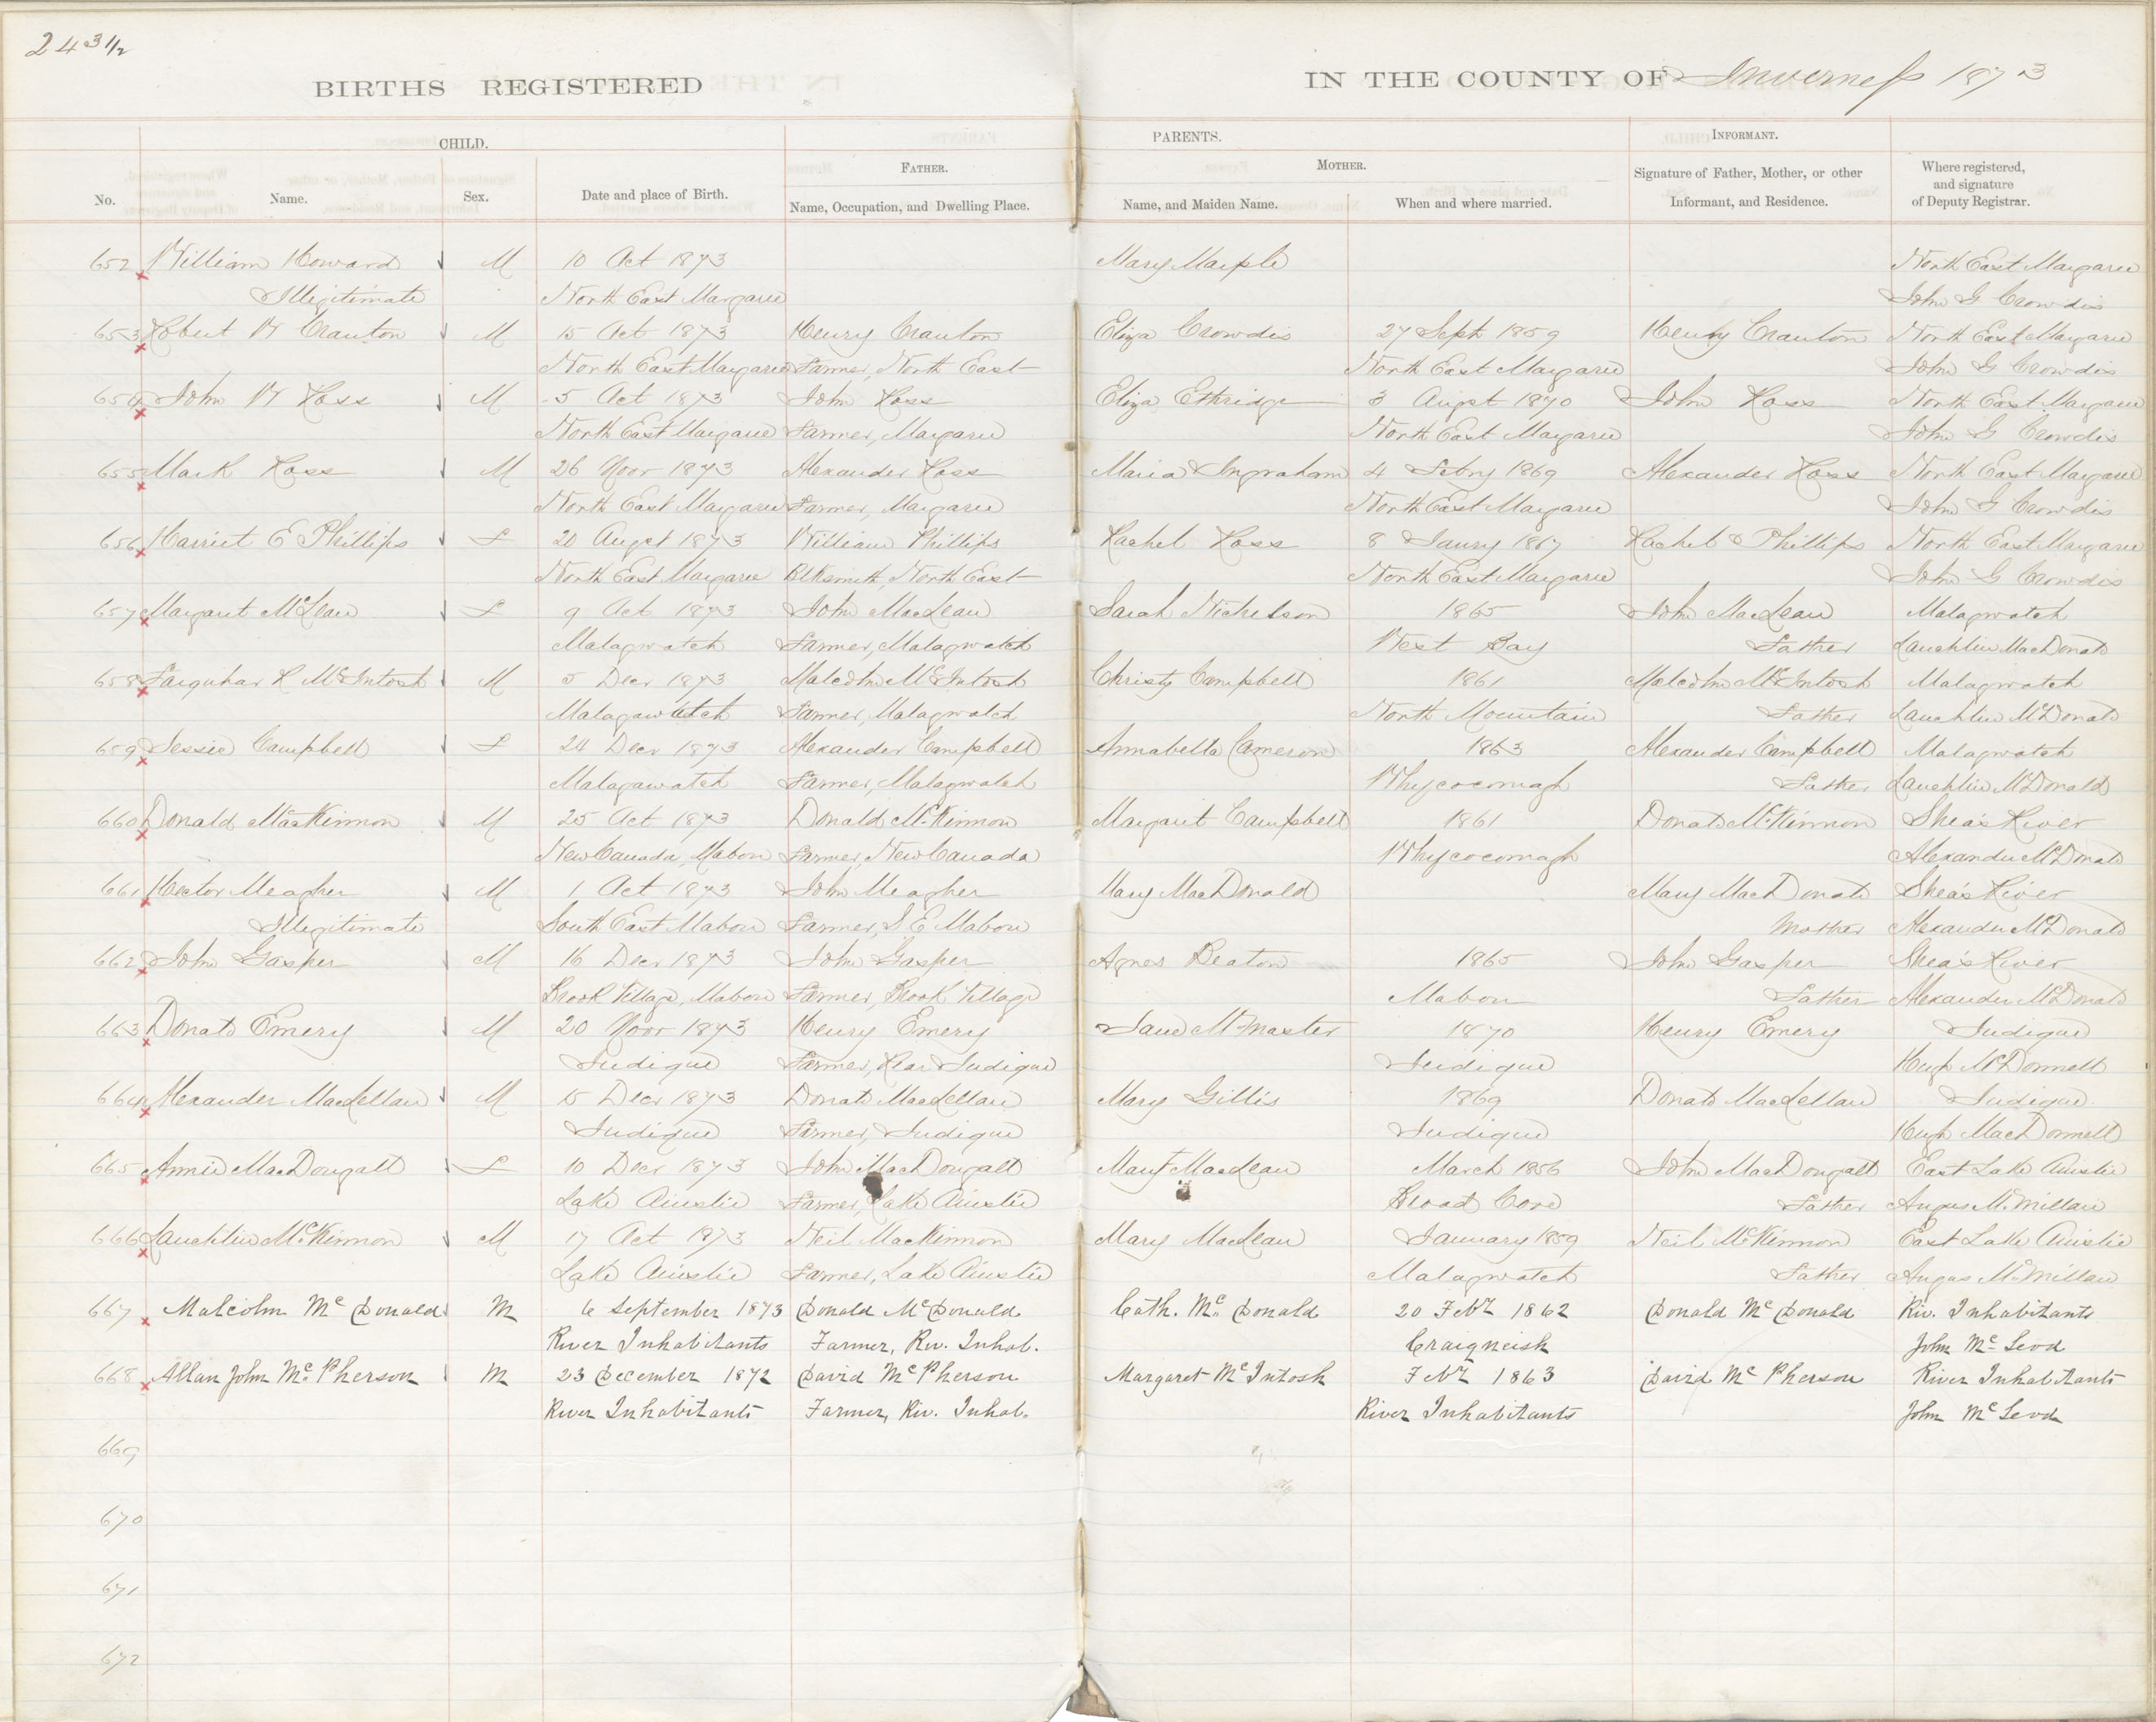 243 1/2
BIRTHS REGISTERED IN THE COUNTY OF Inverness 1873
CHILD. PARENTS. INFORMANT.
FATHER. MOTHER.
No. Name. Sex. Date and place of Birth. Name, Occupation, and Dwelling Place. Name, and Maiden Name. When and where married. Signature of Father, Mother, or other Informant, and Residence. Where registered, and signature of Deputy Registrar.
652 William Howard M 10 Oct 1873 Mary Marple North East Margaree
Illegitimate North East Margaree John G Crowdis
653 Robert W Cranton M 15 Oct 1873 Henry Cranton Eliza Crowdis 27 Sept 1859 Henry Cranton North East Margaree
North East Margaree Farmer, North East North East Margaree John G Crowdis
654 John W Ross M 5 Oct 1873 John Ross Eliza Ethridge 3 Augst 1870 John Ross North East Margaree
North East Margaree Farmer, Margaree North East Margaree John G Crowdis
655 Mark Ross M 26 Novr 1873 Alexander Ross Maria Ingraham 4 Febry 1869 Alexander Ross North East Margaree
North East Margaree Farmer, Margaree North East Margaree John G Crowdis
656 Harriet E Phillips F 20 Augst 1873 William Phillips Rachel Ross 8 Janry 1867 Rachel Phillips North East Margaree
North East Margaree Blksmith, North East North East Margaree John G Crowdis
657 Margaret McLean F 9 Oct 1873 John MacLean Sarah Nicholson 1865 John MacLean Malagwatch
Malagwatch Farmer, Malagwatch West Bay Father Lauchlin MacDonald
658 Farquhar R McIntosh M 5 Decr 1873 Malcolm McIntosh Christy Campbell 1861 Malcolm McIntosh Malagwatch
Malagawatch Farmer, Malagwatch North Mountain Father Lauchlin McDonald
659 Jessie Campbell F 24 Decr 1873 Alexander Campbell Annabella Cameron 1863 Alexander Campbell Malagwatch
Malagawatch Farmer, Malagwatch Whycocomagh Father Lauchlin McDonald
660 Donald MacKinnon M 25 Oct 1873 Donald McKinnon Margaret Campbell 1861 Donald McKinnon Shea's River
New Canada, Mabou Farmer, New Canada Whycocomagh Alexander McDonald
661 Hector Meagher M 1 Oct 1873 John Meagher Mary MacDonald Mary MacDonald Shea's River
Illegitimate South East Mabou Farmer, S E Mabou Mother Alexander McDonald
662 John Gasper M 16 Decr 1873 John Gasper Agnes Beaton 1865 John Gasper Shea's River
Brook Village, Mabou Farmer, Brook Village Mabou Father Alexander McDonald
663 Donald Emery M 20 Novr 1873 Henry Emery Jane McMaster 1870 Henry Emery Judique
Judique Farmer, Rear Judique Judique Hugh McDonnell
664 Alexander MacLellan M 15 Decr 1873 Donald MacLellan Mary Gillis 1869 Donald MacLellan Judique
Judique Farmer, Judique Judique Hugh MacDonnell
665 Annie MacDougall F 10 Decr 1873 John MacDougall Margt MacLean March 1856 John MacDougall East Lake Ainslie
Lake Ainslie Farmer, Lake Ainslie Broad Cove Father Angus McMillan
666 Lauchlin McKinnon M 17 Oct 1873 Neil MacKinnon Mary MacLean January 1859 Neil McKinnon East Lake Ainslie
Lake Ainslie Farmer, Lake Ainslie Malagwatch Father Angus McMillan
667 Malcolm McDonald M 6 September 1873 Donald McDonald Cath. McDonald 20 Feby 1862 Donald McDonald Riv. Inhabitants
River Inhabitants Farmer, Riv. Inhab. Craigneish John McLeod
668 Allan John McPherson M 23 December 1872 David McPherson Margaret McIntosh Feby 1863 David McPherson River Inhabitants
River Inhabitants Farmer, Riv. Inhab. River Inhabitants John McLeod
669
670
671
672